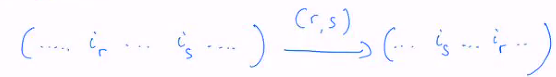 (..... i_r ... i_s ....) \xrightarrow{(r,s)} (... i_s ... i_r ..)